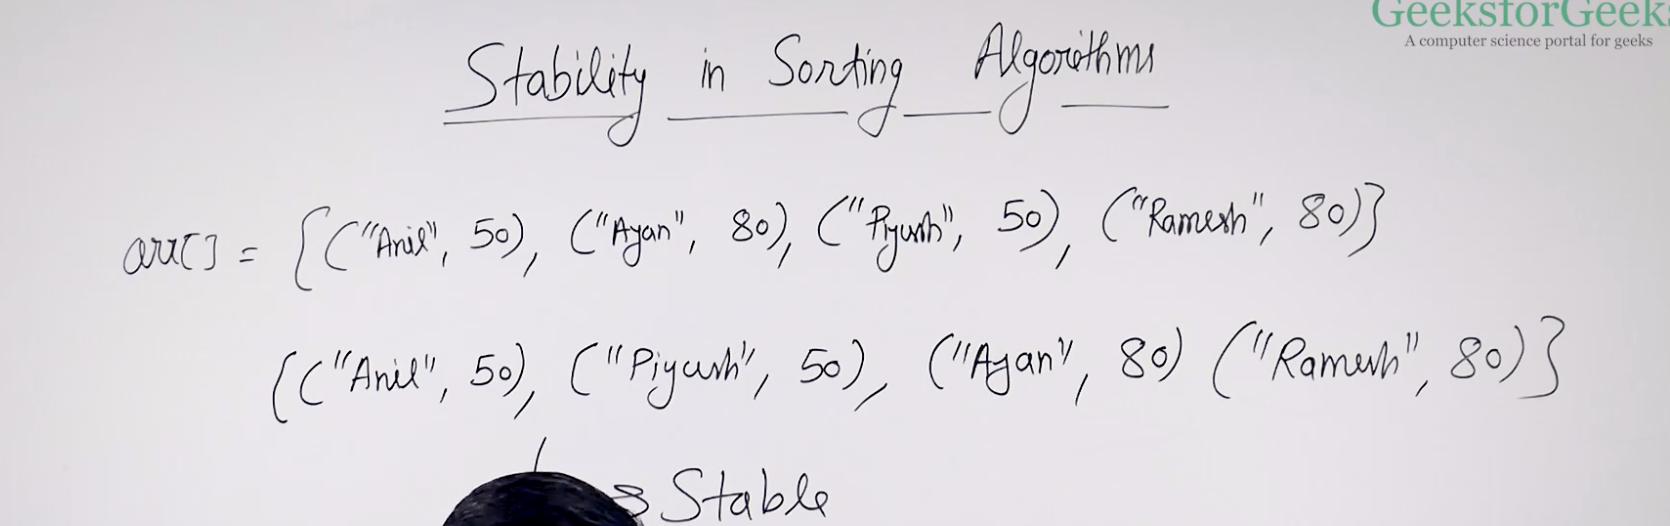 GeeksforGeeks
A computer science portal for geeks
Stability in Sorting Algorithms
arr[] = {("Anil", 50), ("Ayan", 80), ("Piyush", 50), ("Ramesh", 80)}
{("Anil", 50), ("Piyush", 50), ("Ayan", 80) ("Ramesh", 80)}
Stable